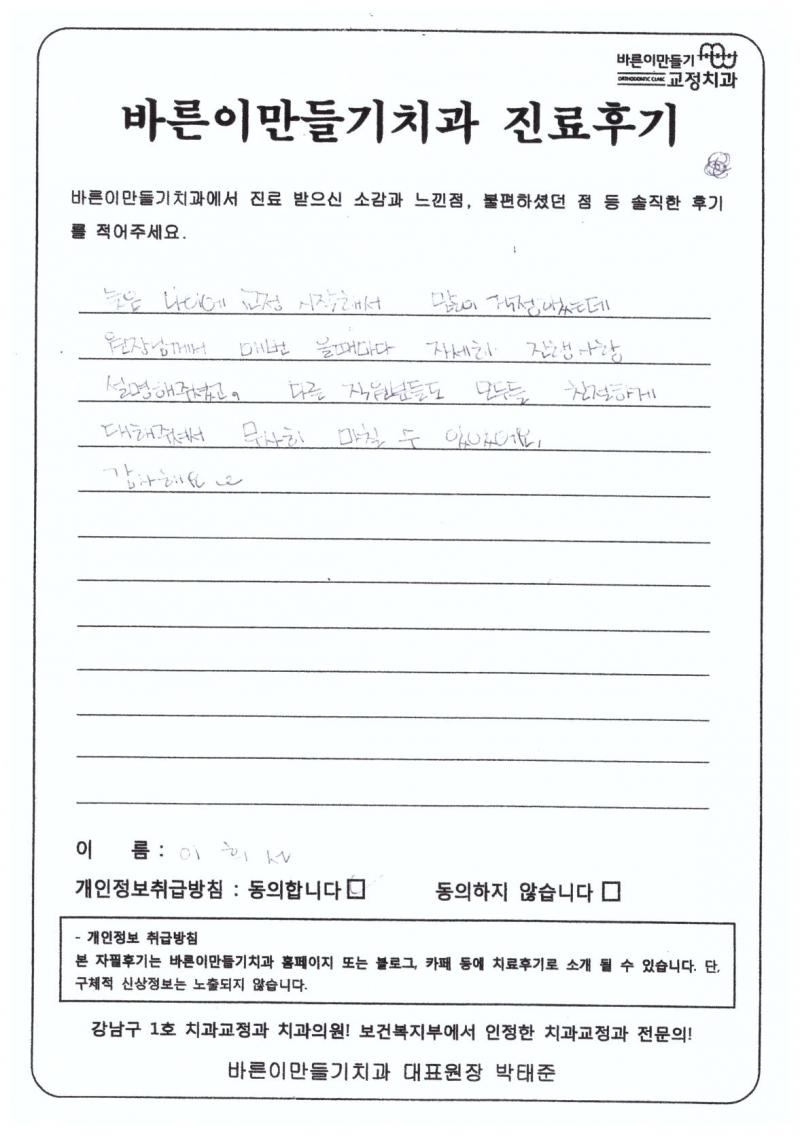 바른이만들기
ORTHODONTIC CLINIC 교정치과
바른이만들기치과 진료후기
바른이만들기치과에서 진료 받으신 소감과 느낀점, 불편하셨던 점 등 솔직한 후기
를 적어주세요.
늦은 나이에 교정 시작해서 많이 걱정했었는데
원장님께서 매번 올때마다 자세히 진행사항
설명해주셨고. 다른 직원분들도 모두들 친절하게
대해주셔서 무사히 마칠 수 있었어요.
감사해요
이 름 : 이 희
개인정보취급방침 : 동의합니다 □ 동의하지 않습니다 □
- 개인정보 취급방침
본 자필후기는 바른이만들기치과 홈페이지 또는 블로그, 카페 등에 치료후기로 소개 될 수 있습니다. 단,
구체적 신상정보는 노출되지 않습니다.
강남구 1호 치과교정과 치과의원! 보건복지부에서 인정한 치과교정과 전문의!
바른이만들기치과 대표원장 박태준